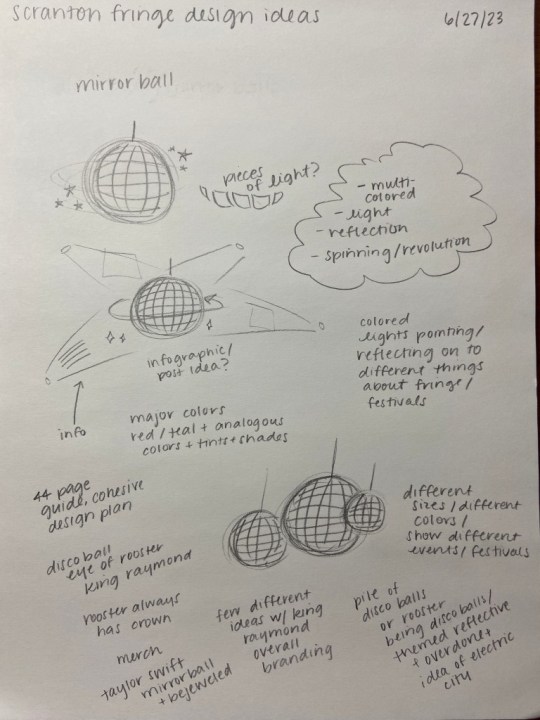 scranton fringe design ideas
6/27/23
mirror ball
pieces
of light?
- multi-
colored
- light
- reflection
- spinning/revolution
infographic/
post idea?
info
colored
lights pointing/
reflecting on to
different things
about fringe/
festivals
major colors
red/teal + analogous
colors + tints + shades
44 page
guide, cohesive
design plan
disco ball
eye of rooster
king raymond
rooster always
has crown
merch
taylor swift
mirrorball
+ bejeweled
few different
ideas w/ king
raymond
overall
branding
different
sizes/different
colors/
show different
events/festivals
pile of
disco balls
or rooster
being disco balls/
themed reflective
+ overdone +
idea of electric
city